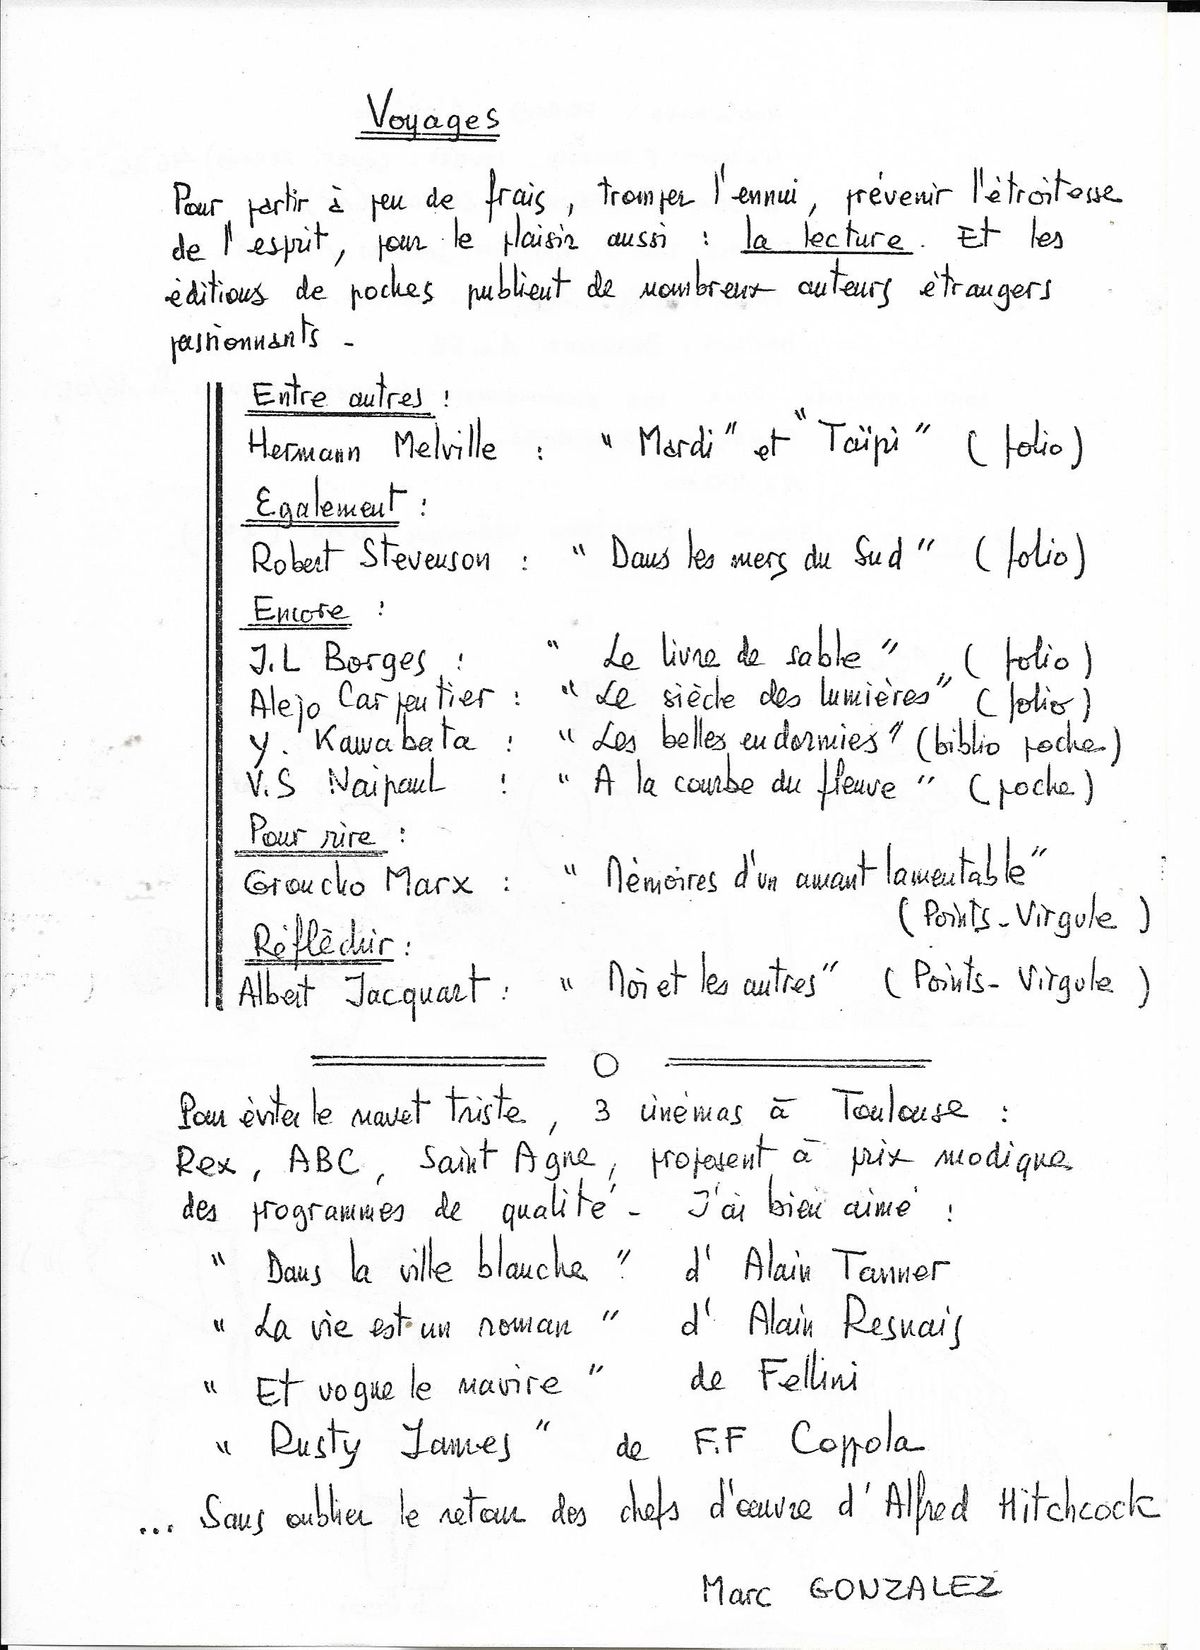 Voyages
Pour partir à peu de frais, tromper l'ennui, prévenir l'étroitesse
de l'esprit, pour le plaisir aussi : la lecture. Et les
éditions de poches publient de nombreux auteurs étrangers
passionnants -
Entre autres :
Hermann Melville : " Mardi " et " Taïpi " ( folio )
Egalement :
Robert Stevenson : " Dans les mers du Sud " ( folio )
Encore :
J.L Borges : " Le livre de sable " ( folio )
Alejo Carpentier : " Le siècle des lumières " ( folio )
Y. Kawabata : " Les belles endormies " (biblio poche)
V.S Naipaul : " A la courbe du fleuve " ( poche )
Pour rire :
Groucho Marx : " Mémoires d'un amant lamentable "
( Points-Virgule )
Réfléchir :
Albert Jacquart : " Moi et les autres " ( Points-Virgule )
O
Pour éviter le navet triste, 3 cinémas à Toulouse :
Rex, ABC, Saint Agne, proposent à prix modique
des programmes de qualité - J'ai bien aimé :
" Dans la ville blanche " d' Alain Tanner
" La vie est un roman " d' Alain Resnais
" Et vogue le navire " de Fellini
" Rusty James " de F.F Coppola
... Sans oublier le retour des chefs d'œuvre d' Alfred Hitchcock
Marc GONZALEZ